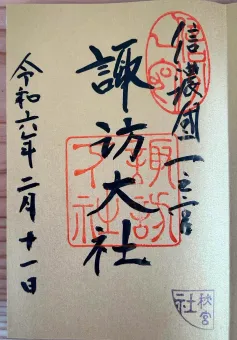 信濃國一之宮
諏訪大社
令和六年二月十一日
諏訪
大社
秋宮
社